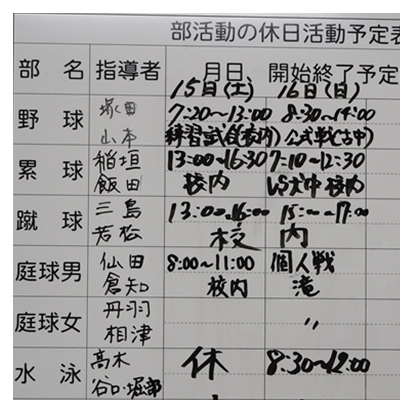 部活動の休日活動予定表
部 名 指導者 月日 開始終了予定
15日(土) 16日(日)
野 球 塚田 7:20~13:00 8:30~14:00
山本 練習試合(校内) 公式戦(古中)
累 球 稲垣 13:00~16:30 7:10~12:30
飯田 校内 VS犬中 校内
蹴 球 三島 13:00~16:00 15:00~17:00
若松 校 内
庭球男 仙田 8:00~11:00 個人戦
倉知 校内 滝
庭球女 丹羽
相津 〃
水 泳 高木 休 8:30~12:00
谷口・堀部